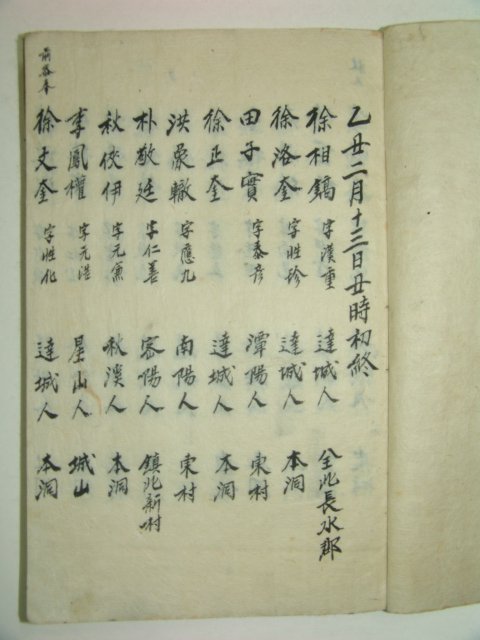 乙丑二月十三日丑時初終
徐相鎬 字漢重 達城人 全北長水郡
徐洛奎 字性珍 達城人 本洞
田子實 字泰彦 潭陽人 東村
徐正奎 達城人 本洞
洪象轍 字應九 南陽人 東村
朴敬廷 字仁善 密陽人 鎮北新村
秋俠伊 字元兼 秋溪人 本洞
李鳳權 字元浩 星山人 城山
前參奉
徐丈奎 字性化 達城人 本洞